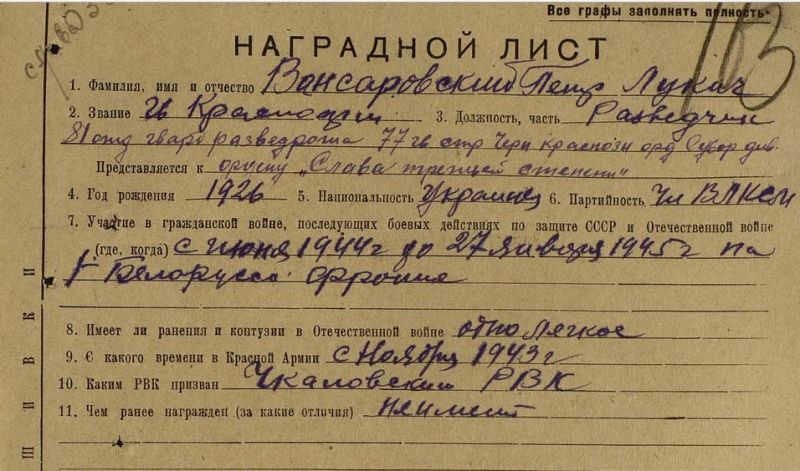 Все графы заполнять полность
183
НАГРАДНОЙ ЛИСТ
1. Фамилия, имя и отчество Вонсаровский Петр Лукич
2. Звание гв Красноарм 3. Должность, часть Разведчик
81 отд гвард разведрота 77 гв стр Черн краснозн орд Сувор див.
Представляется к ордену „Слава третьей степени"
4. Год рождения 1926 5. Национальность Украинец 6. Партийность Чл ВЛКСМ
7. Участие в гражданской войне, последующих боевых действиях по защите СССР и Отечественной войне
(где, когда) с июня 1944г до 27 января 1945г на
1 Белорусск фронте
8. Имеет ли ранения и контузии в Отечественной войне одно легкое
9. С какого времени в Красной Армии с Ноября 1943г
10. Каким РВК призван Чкаловским РВК
11. Чем ранее награжден (за какие отличия) не имеет
ШИВКИ